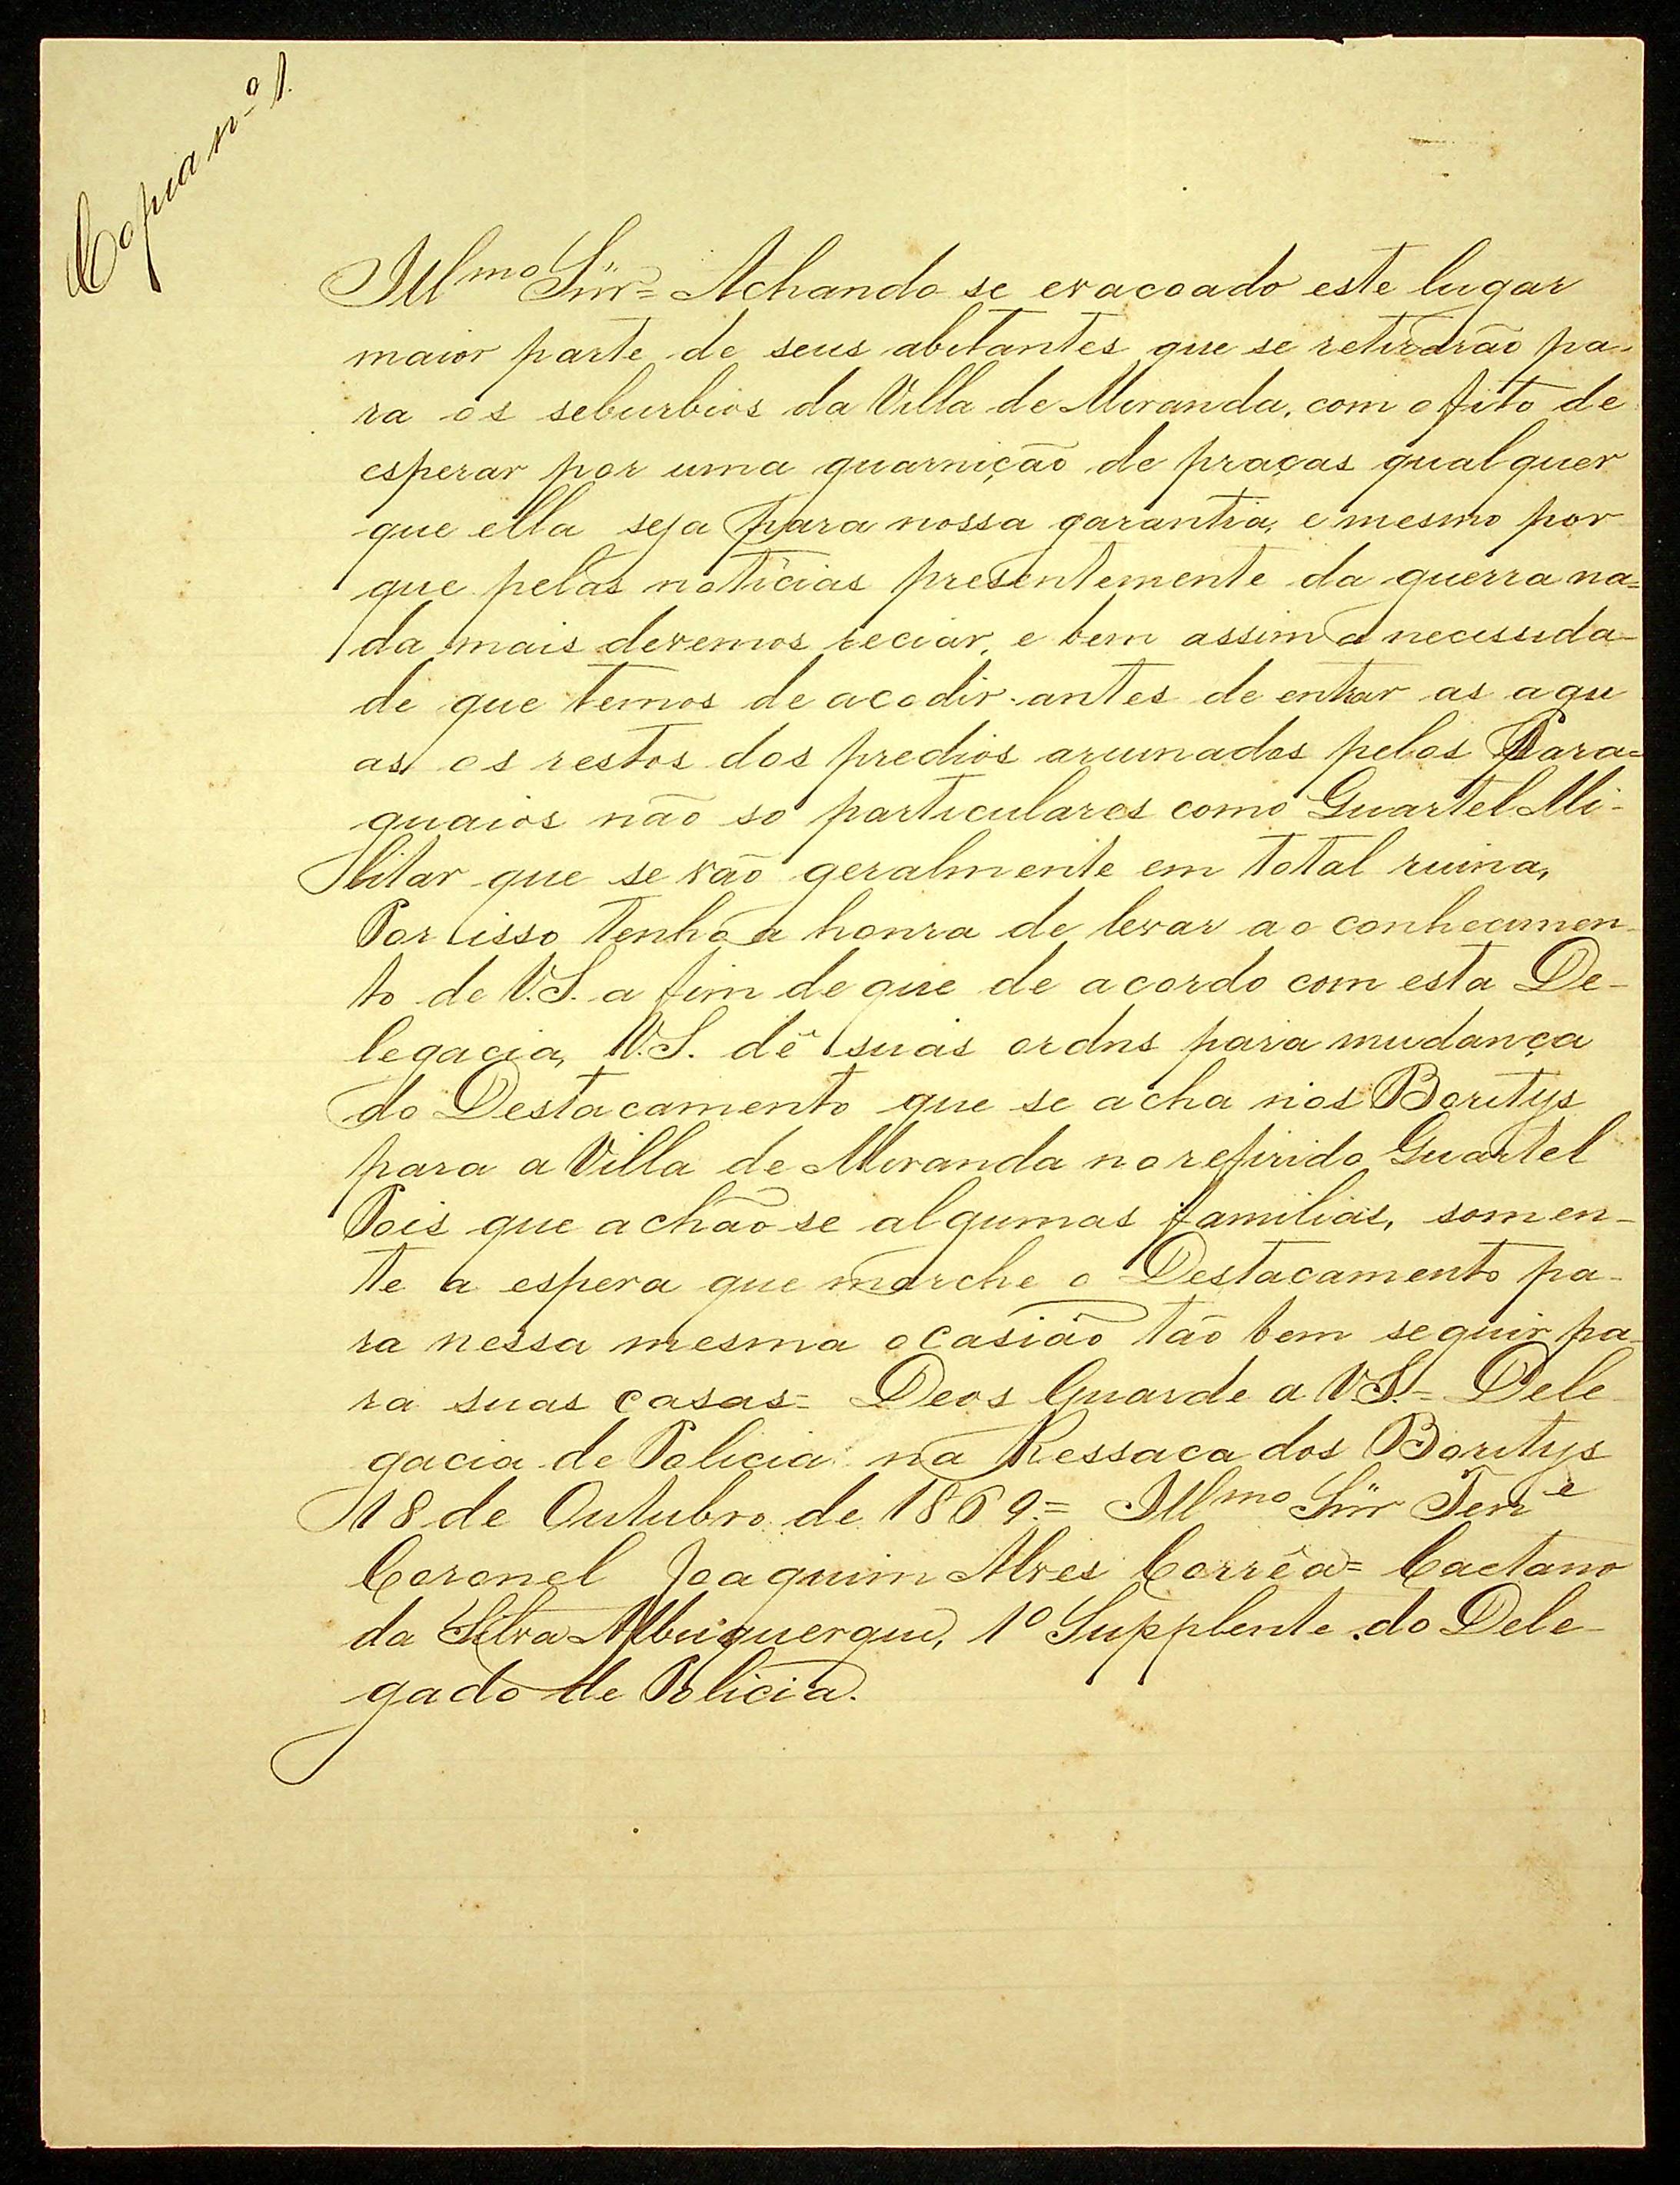 Copia nº 1.
Illmo Snr = Achando se evacoado este lugar
maior parte de seus abitantes que se retirarão pa-
ra os seburbios da Villa de Miranda, com o fito de
esperar por uma guarnição de praças qualquer
que ella seja para nossa garantia, e mesmo por
que pelas noticias presentemente da guerra na=
da mais devemos reciar, e bem assim a necessida-
de que temos de acodir antes de entrar as agu
as os restos dos predios aruinados pelos Para=
guaios não so particulares como Quartel Mi-
litar que se vão geralmente em total ruina,
Por isso tenho a honra de levar ao conhecimen-
to de V.S. a fim de que de acordo com esta De-
legacia, V.S. dê suas ordns para mudança
do Destacamento que se acha nos Boritys
para a Villa de Miranda no refirido Quartel
Pois que achão se algumas familias, somen-
te a espera que marche o Destacamento pa-
ra nessa mesma ocasião tão bem seguir pa-
ra suas casas = Deos Guarde a V.S. = Dele
gacia de Policia na Ressaca dos Boritys
18 de Outubro de 1869. = Illmo Snr Tene
Coronel Joaquim Alves Corrêa = Caetano
da Silva Albuquerque, 1º Supplente do Dele-
gado de Policia.